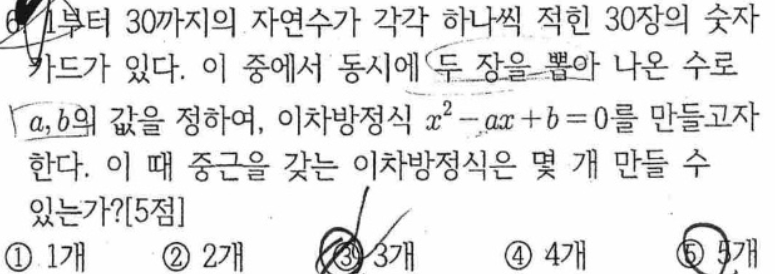 6. 1부터 30까지의 자연수가 각각 하나씩 적힌 30장의 숫자
카드가 있다. 이 중에서 동시에 두 장을 뽑아 나온 수로
a, b의 값을 정하여, 이차방정식 x²-ax+b=0를 만들고자
한다. 이 때 중근을 갖는 이차방정식은 몇 개 만들 수
있는가?[5점]
① 1개 ② 2개 ③ 3개 ④ 4개 ⑤ 5개